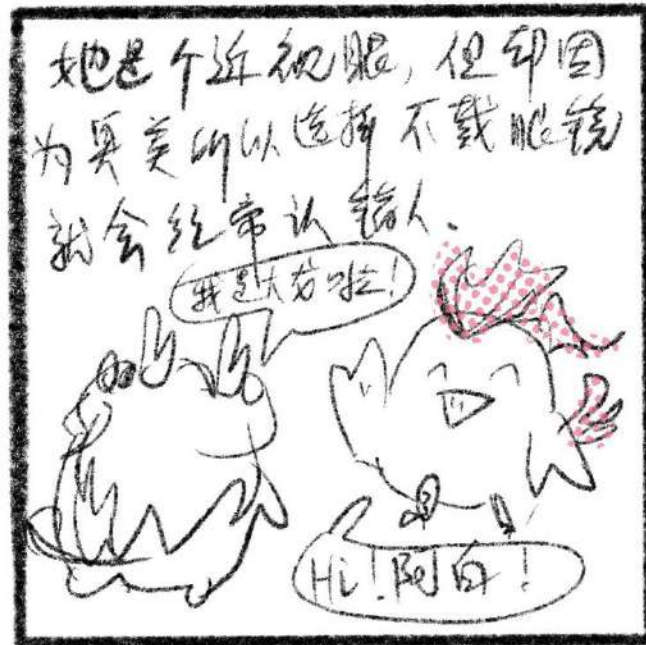 她是个近视眼，但却因
为臭美所以选择不戴眼镜
就会经常认错人.
我是大花啦！
Hi！阿白！